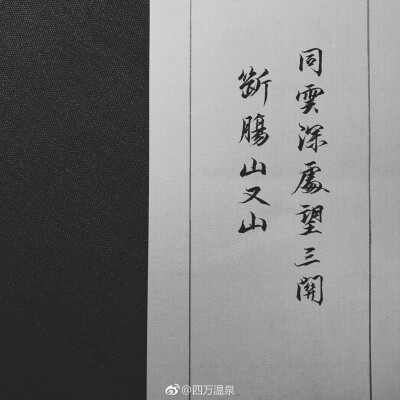 同雲深處望三關
斷腸山又山
@四万温泉